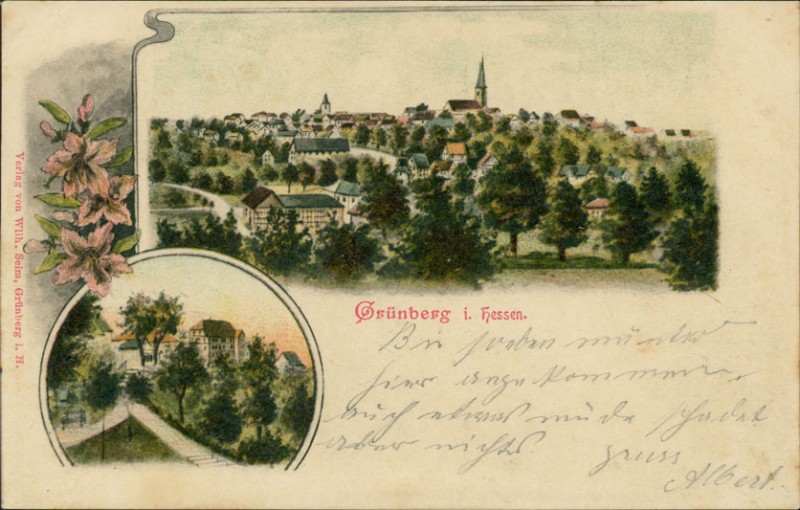 Verlag von Wilh. Seim, Grünberg i. H.
Grünberg i. Hessen.
Bin soeben munter
hier angekommen,
auch etwas müde schadet
aber nichts.
gruss
Albert.